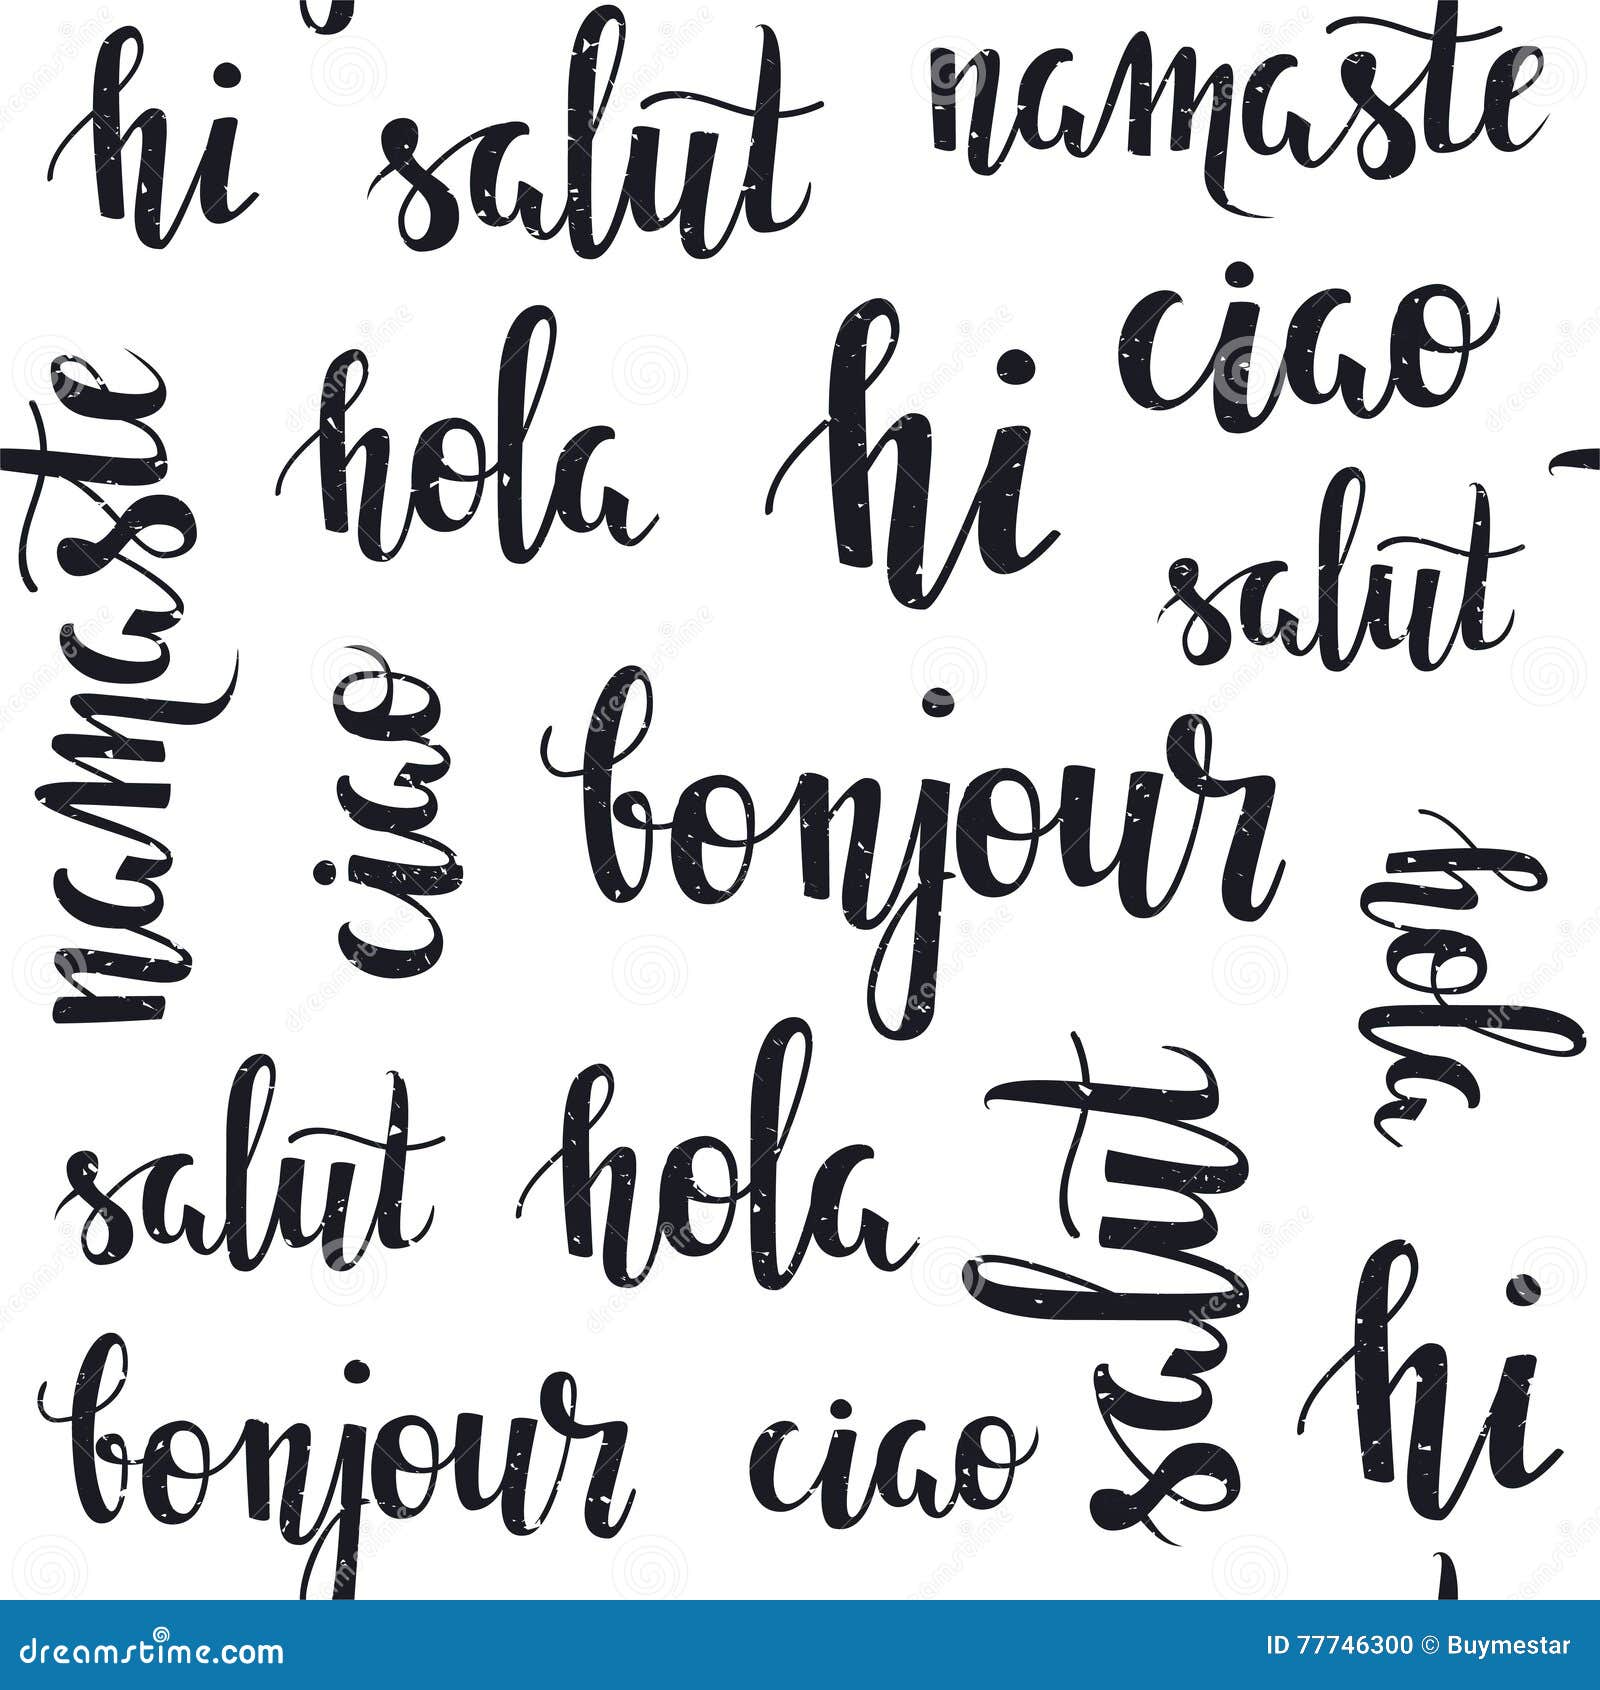 hi salut namaste
ciao
hola hi
namaste
salut
ciao
bonjour
hola
salut hola
salut
hi
bonjour ciao
dreamstime.com
ID 77746300 © Buymestar